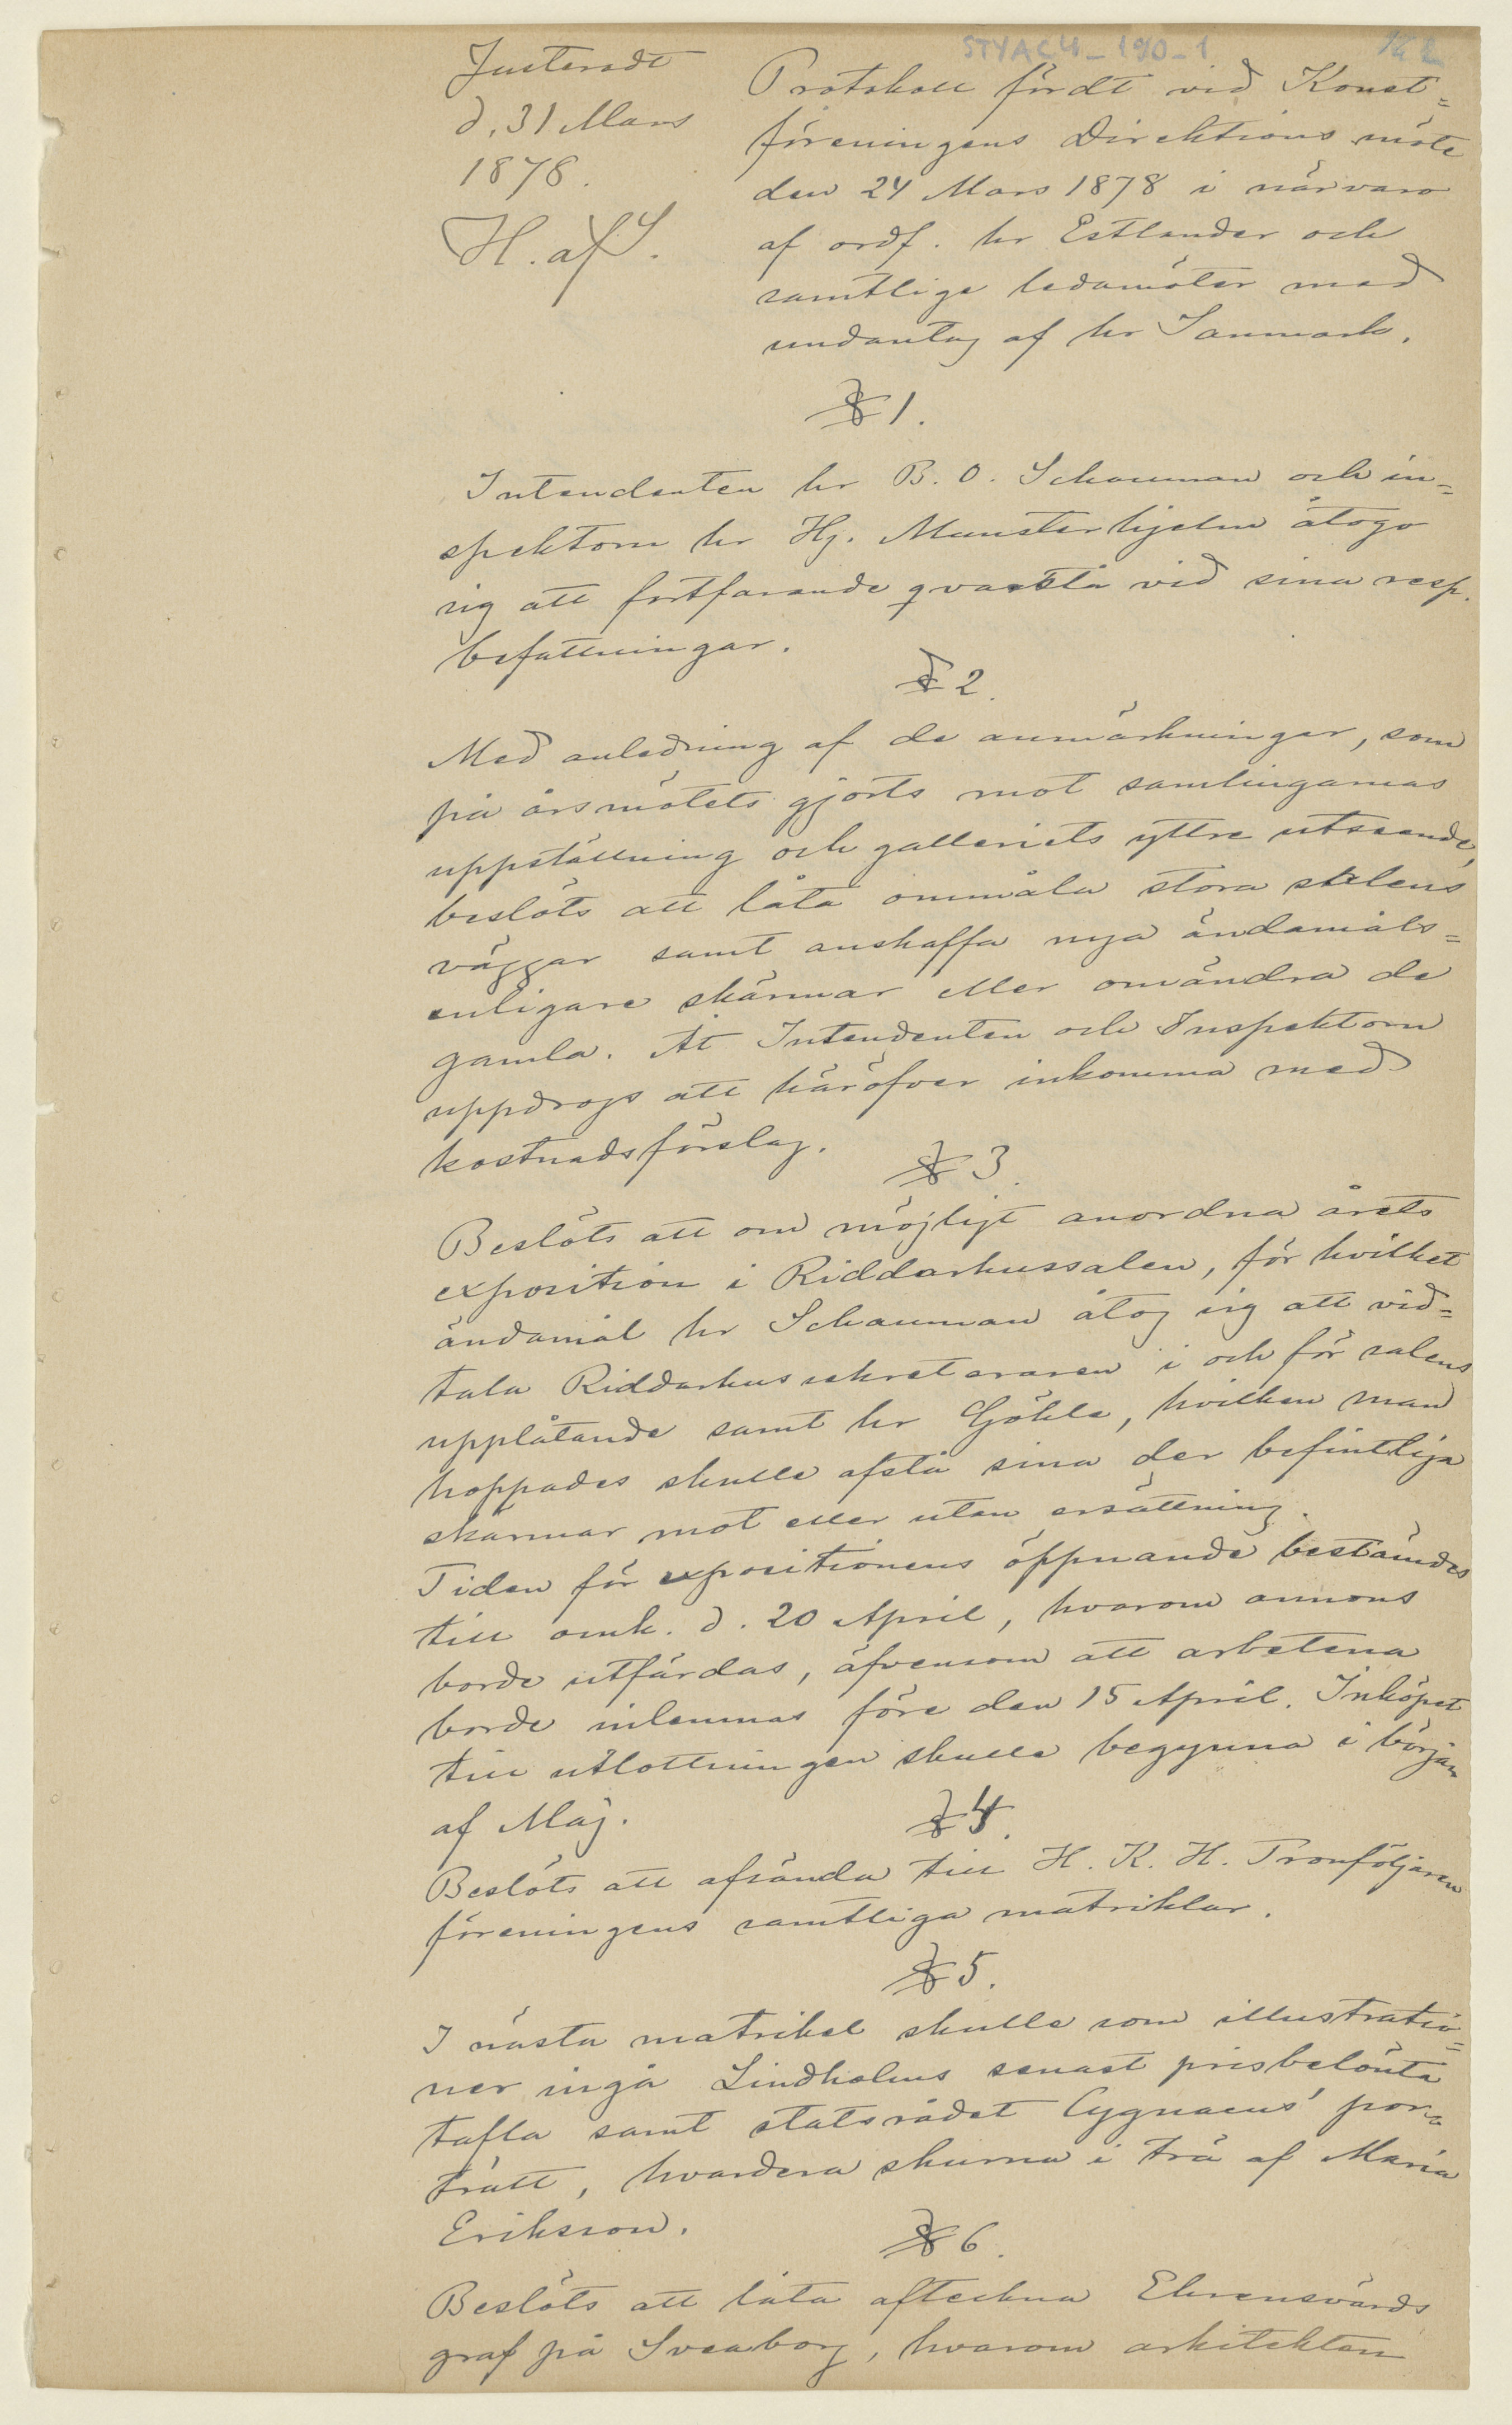 STYAC4_190-1
Justeradt
d. 31 Mars
1878.
H. af S.
Protokoll fördt vid Konst=
föreningens Direktions möte
den 24 Mars 1878 i närvaro
af ordf. hr Estlander och
samtlige ledamöter med
undantag af hr Sanmark.
§ 1.
Intendenten hr B. O. Schauman och in=
spektorn hr Hj. Munsterhjelm åtogo
sig att fortfarande qvarstå vid sina resp.
befattningar.
§ 2.
Med anledning af de anmärkningar, som
på årsmötets gjorts mot samlingarnas
uppställning och galleriets yttre utseende,
beslöts att låta ommåla stora salens
väggar samt anskaffa nya ändamåls=
enligare skärmar eller omändra de
gamla. At Intendenten och Inspektorn
uppdrogs att häröfver inkomma med
kostnadsförslag.
§ 3.
Beslöts att om möjligt anordna årets
exposition i Riddarhussalen, för hvilket
ändamål hr Schauman åtog sig att vid=
tala Riddarhussekreteraren i och för salens
upplåtande samt hr Göhle, hvilken man
hoppades skulle afstå sina der befintliga
skärmar mot eller utan ersättning.
Tiden för expositionens öppnande bestämdes
till omk. d. 20 April, hvarom annons
borde utfärdas, äfvensom att arbetena
borde inlemnas före den 15 April. Inköpet
till utlottningen skulle begynna i början
af Maj.
§ 4.
Beslöts att afsända till H. K. H. Tronföljaren
föreningens samtliga matriklar.
§ 5.
I nästa matrikel skulle som illustratio=
ner ingå Lindholms senast prisbelönta
tafla samt statsrådet Cygnaeus' por=
trätt, hvardera skurna i trä af Maria
Eriksson.
§ 6.
Beslöts att låta afteckna Ehrensvärds
graf på Sveaborg, hvarom arkitekten